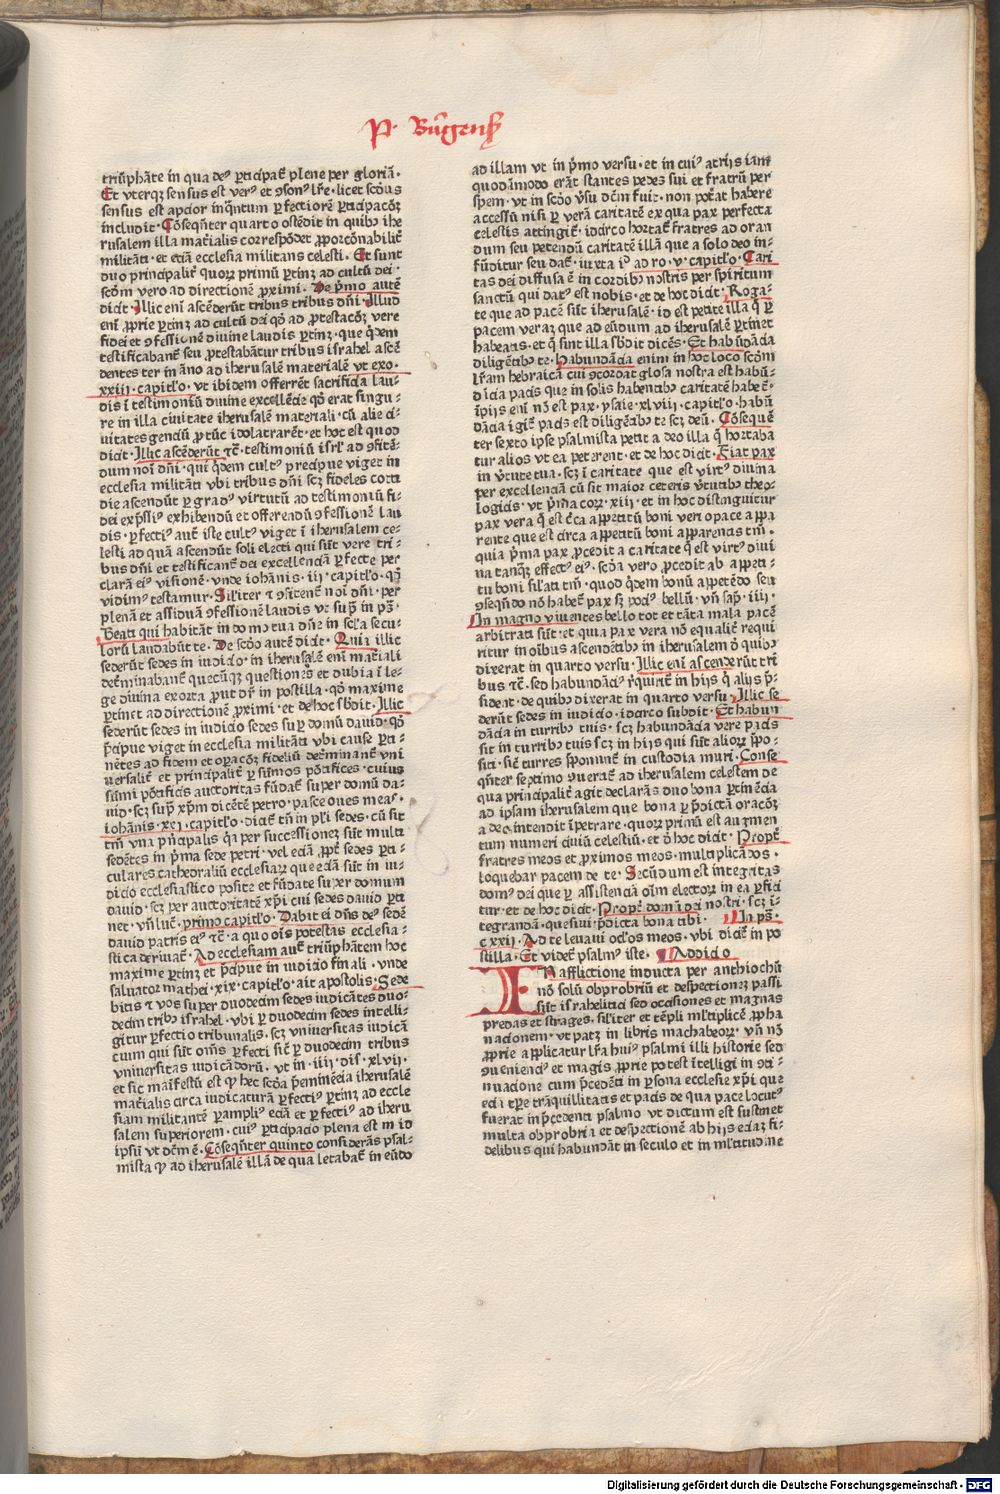 P. Burgens̄
triūphāte in qua deꝰ ꝑticipat̄ plene per gloriā.
Et vterqꝫ sensus est verꝰ et ꝯsonꝰ lr̄e. licet scd̄us
sensus est apcior inqn̄tum ꝑfectiorē ꝑticipacōꝫ
includit. Cōseqn̄ter quarto ostēdit in quibꝰ ihe
rusalem illa mat̄ialis correspōdet ꝓporcōnabilit̄
militāti. et eciā ecclesia militans celesti. Et sunt
duo principalit̄ quoꝝ primū ꝑtinꝫ ad cultū dei.
scd̄m vero ad directionē ꝓximi. De p̄mo autē
dicit. Illic eni ascēderūt tribus tribus dn̄i. Illud
eni ꝓprie ꝑtinꝫ ad cultū dei qd̄ ad ꝓtestacōꝫ vere
fidei et ꝯfessionē diuine laudis ꝑtinꝫ. que qd̄em
testificabant̄ seu ꝓtestabātur tribus israhel ascē
dentes ter in āno ad iherusalē materialē vt exo.
xxiii. capitl̓o. vt ibidem offerrēt sacrificia lau-
dis ī testimoniū diuine excellēcie qd̄ erat singu-
re in illa ciuitate iherusalē materiali. cū alie ci-
uitates genciū ꝓ tūc idolatrarēt. et hoc est quod
dicit. Illic ascēderūt ⁊c̄. testimoniū isrl̓ ad ꝯfitē-
dum noī dn̄i. qui qd̄em cultꝰ precipue viget in
ecclesia militāti vbi tribus dn̄i scꝫ fideles coti
die ascendūt ꝑ gradꝰ virtutū ad testimoniū fi-
dei exp̄ssiꝰ exhibendū et offerendū ꝯfessionē lau
dis. ꝑfectiꝰ aut̄ iste cultꝰ viget ī iherusalem ce-
lesti ad quā ascendūt soli electi qui sūt vere tri-
bus dn̄i et testificant̄ dei excellenciā ꝑfecte per
clarā eiꝰ visionē. vnde iohānis. iii. capitl̓o. qd̄
vidimꝰ testamur. Sil̓iter ⁊ ꝯfitent̄ noī dn̄i. per
plenā et assiduā ꝯfessionē laudis vt sup̄ in ps̄.
Beati qui habitāt in domo tua dn̄e in scl̓a secu-
lorū laudabūt te. De scd̄o autē dicit. Quia illic
sederūt sedes in iudicio. in iherusalē eni mat̄iali
det̄minabant̄ quecūqꝫ questionꝫ et dubia ī le-
ge diuina exorta ꝓut dr̄ in postilla. qd̄ maxime
ꝑtinet ad directionē ꝓximi. et de hoc sb̄dit. Illic
sederūt sedes in iudicio sedes suꝑ domū dauid. qd̄
p̄cipue viget in ecclesia militāti vbi cause ꝑti-
nētes ad fidem et oꝑacōꝫ fideliū det̄minant̄ vni
uersalit̄ et principalit̄ ꝑ sūmos pōtifices. cuius
sūmi pōtificis auctoritas fūdat̄ super domū da-
uid. scꝫ sup̄ xp̄m dicētē petro. pasce oues meas.
iohānis. xxi. capitl̓o. dicit̄ tn̄ in pl̓i sedes. cū sit
tm̄ vna pn̄cipalis qꝛ per successionꝫ sūt multi
sedētes in p̄ma sede petri. vel eciā ꝓpt̄ sedes ꝑti-
culares cathedraliū ecclesiaꝝ que eciā sūt in iu-
dicio ecclesiastico posite et fūdate super domum
dauid. scꝫ per auctoritatē xp̄i cui sedes dauid ꝑti
net. vn̄ luc̄. primo capitl̓o. Dabit ei dn̄s deꝰ sedē
dauid patris eiꝰ ⁊c̄. a quo oīs potestas ecclesia-
stica deriuat̄. Ad ecclesiam aut̄ triūphātem hoc
maxime ꝑtinꝫ et p̄cipue in iudicio finali. vnde
saluator mathei. xix. capitl̓o. ait apostolis. Sede
bitis ⁊ vos super duodecim sedes iudicātes duo-
decim tribꝰ israhel. vbi ꝑ duodecim sedes intelli-
gitur ꝑfectio tribunalis. scꝫ vniuersitas iudicā
cium qui sūt om̄s ꝑfecti sic̄ ꝑ duodecim tribus
vniuersitas iudicādorū. vt in. iiii. dis̄. xlvii.
et sic maīfestū est ꝙ hec scd̄a p̄eminēcia iherusalē
mat̄ialis circa iudicaturā ꝑfectiꝰ ꝑtinꝫ ad eccle
siam militantē ꝑampliꝰ eciā et ꝑfectiꝰ ad iheru
salem superiorem. cuiꝰ ꝑticipacio plena est in id
ipsū vt dc̄m ē. Cōseqn̄ter quinto considerās psal-
mista ꝙ ad iherusalē illā de qua letabat̄ in eūdo
ad illam vt in p̄mo versu. et in cuiꝰ atriis iam̄
quodāmodo erāt stantes pedes sui et fratrū per
spem. vt in scd̄o v̄su dc̄m fuit. non pot̄at habere
accessū nisi ꝑ verā caritatē ex qua pax perfecta
celestis attingit̄. idcirco hortat̄ fratres ad oran
dum seu petendū caritatē illā que a solo deo in-
fūditur seu dat̄. iuxta id ad ro. v. capitl̓o. Cari
tas dei diffusa ē in cordibꝰ nostris per spiritum
sanctū qui datꝰ est nobis. et de hoc dicit. Roga-
te que ad pacē sūt iherusalē. id est petite illa q̄ ꝑ
pacem veraꝫ que ad eūdum ad iherusalē ꝑtinēt
habeatis. et q̄ sint illa sb̄dit dicēs. Et habūdācia
diligētibꝰ te. Habundācia enim in hoc loco scd̄m
lr̄am hebraicā cui ꝯcordat glosa nostra est habū-
dācia pacis que in solis habentibꝰ caritatē habet̄.
īpiis eni nō est pax. ysaie. xlviii. capitl̓o. habū
dācia igit̄ pacis est diligētibꝰ te scꝫ deū. Cōsequē
ter sexto ipse psalmista petit a deo illa q̄ hortaba
tur alios vt ea peterent. et de hoc dicit. Fiat pax
in v̄tute tua. scꝫ ī caritate que est virtꝰ diuina
per excellenciā cū sit maior ceteris v̄tutibꝰ theo-
logicis. vt p̄ma corꝝ. xiii. et in hoc distinguitur
pax vera q̄ est c̄ca appetitū boni veri o pace appa
rente que est circa appetitū boni apparencis tm̄.
quia p̄ma pax ꝓcedit a caritate q̄ est virtꝰ diui
na tanqꝫ effectꝰ eiꝰ. scd̄a vero ꝓcedit ab appeti-
tu boni sil̓ati tm̄. quod qd̄em bonū appetēdo seu
ꝯseqn̄do nō habet̄ pax sꝫ pociꝰ bellū. vn̄ sap̄. iiii.
In magno viuentes bello tot et tāta mala pacē
arbitrati sūt. et quia pax vera nō equalit̄ requi
ritur in oībus ascendētibꝰ in iherusalem d̄ quibꝰ
dixerat in quarto versu. Illic eni ascenderūt tri
bus ⁊c̄. sed habundāciꝰ r̄quirit̄ in hiis q̄ aliis p̄-
sident. de quibꝰ dixerat in quarto versu. Illic se
derūt sedes in iudicio. idcirco subdit. Et habun
dācia in turribꝰ tuis. scꝫ habundācia vere pacis
sit in turribꝰ tuis scꝫ in hiis qui sūt alioꝝ p̄po-
siti. sic̄ turres p̄ponunt̄ in custodia muri. Conse
qn̄ter septimo ꝯuerās ad iherusalem celestem de
qua principalit̄ agit declarās duo bona ꝑtinēcia
ad ipsam iherusalem que bona ꝑ p̄dictā oracōꝫ
a deo intendit īpetrare. quoꝝ primū est augmen
tum numeri ciuiū celestiū. et d̄ hoc dicit. Propt̄
fratres meos et ꝓximos meos. multiplicādos.
loquebar pacem de te. Secūdum est integritas
domꝰ dei que ꝑ assistenciā oīm electoꝝ in ea ꝑfici
tur. et de hoc dicit. Propt̄ domū dei nostri. scꝫ ī-
tegrandā. quesiui p̄dicta bona tibi. In ps̄.
cxxii. Ad te leuaui oculos meos. vbi dicit̄ in po
stilla. Et videt̄ psalmꝰ iste. Addicio
IN afflictione inducta per anthiochū
nō solū obprobriū et despectionꝫ passi
sūt israhelitici sed occasiones et magnas
predas et strages. sil̓iter et tēpli ml̓tiplicē ꝓpha
nacionem. vt patꝫ in libris machabeoꝝ. vn̄ nō
ꝓprie applicatur lr̄a huiꝰ psalmi illi historie sed
ꝯuenienciꝰ et magis ꝓprie potest ītelligi in ꝯti-
nuacione cum p̄cedēti in ꝑsona ecclesie xp̄i que
eciā tp̄re trāquillitatis et pacis de qua pace locutꝰ
fuerat in p̄cedenti psalmo vt dictum est sustinet
multa obprobria et despectionē ab hiis eciaꝫ fi-
delibus qui habundāt in seculo et in ml̓titudine
Digitalisierung gefördert durch die Deutsche Forschungsgemeinschaft - DFG